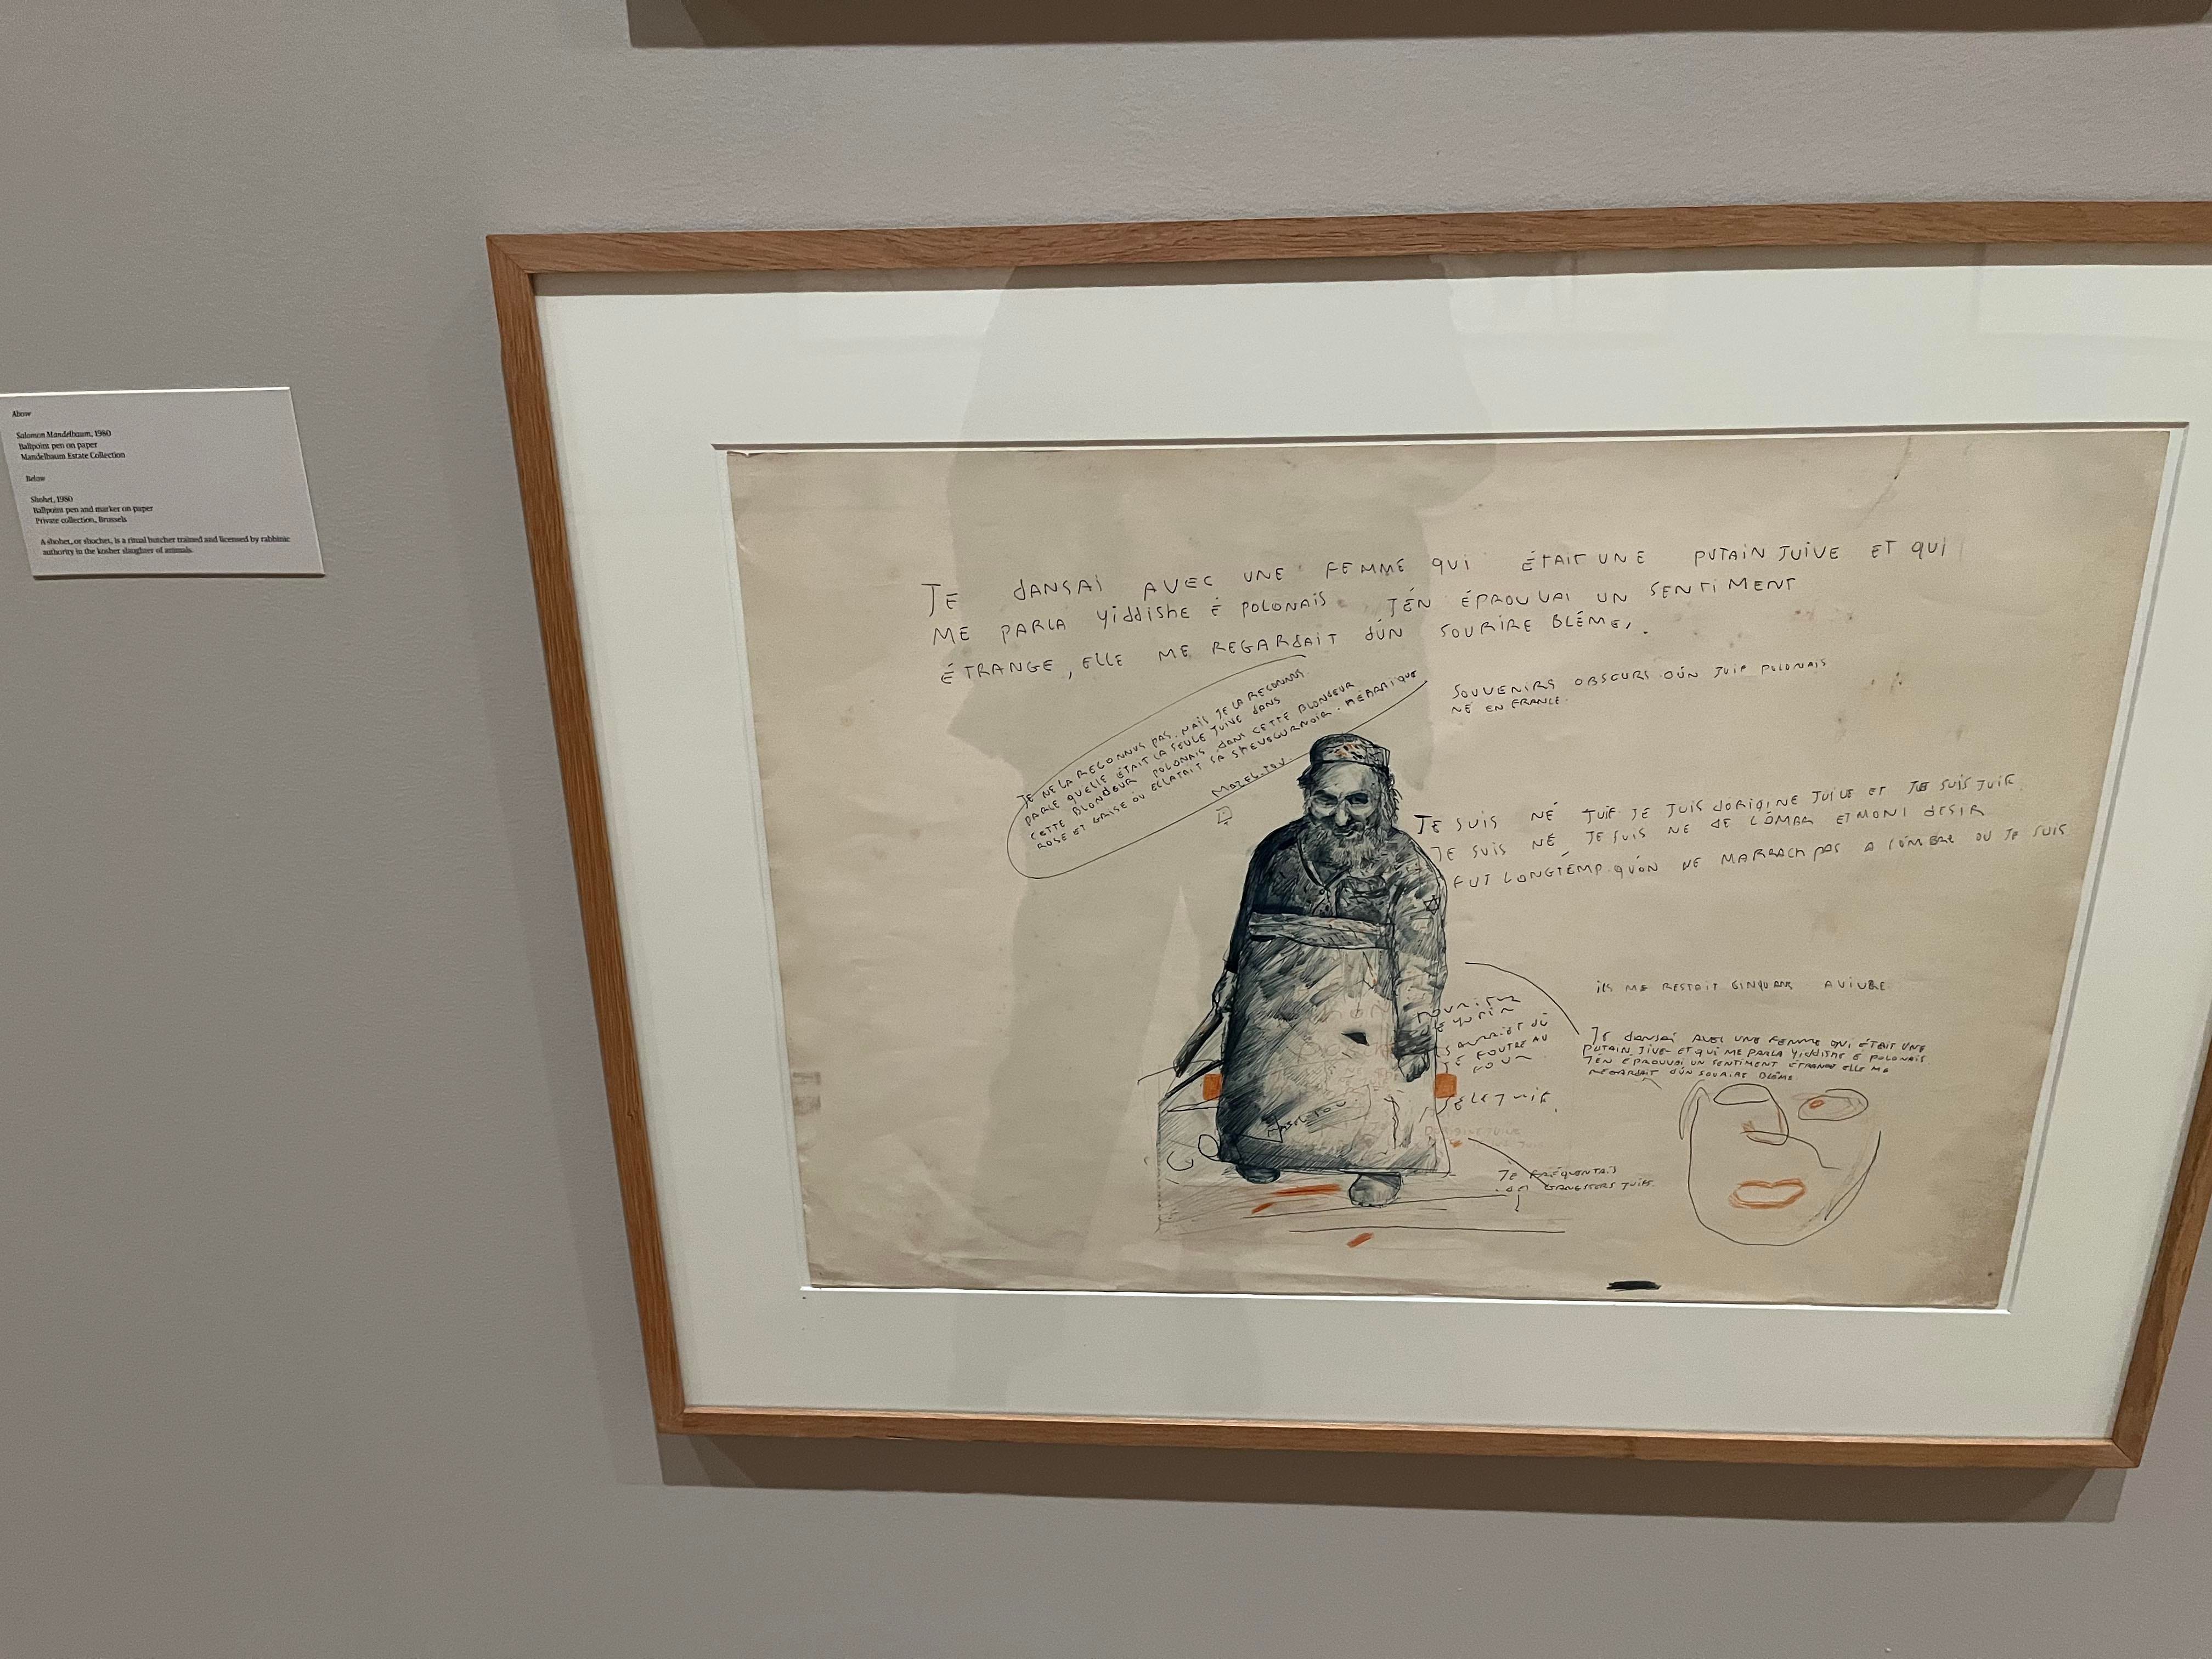 Above
Salomon Mandelbaum, 1980
Ballpoint pen on paper
Mandelbaum Estate Collection
Below
Shohet, 1980
Ballpoint pen and marker on paper
Private collection, Brussels
A shohet, or shochet, is a ritual butcher trained and licensed by rabbinic
authority in the kosher slaughter of animals.
JE dANSAi AVEC UNE FEMME qUi ÉTAIT UNE PUTAIN JUiVE ET qUi
ME PARLA YiddiSHE É POLONAIS JÉN ÉPROUVAI UN SENTiMENT
ÉTRANGE, ELLE ME REGARdAiT dÚN SOURIRE BLÊME,.
JE NE LA RECONNUS PAS. MAiS JE LA RECONNUS
PARCE QUELLE ÉTAIT LA SEULE JUIVE DANS
CETTE BLONDEUR POLONAIS DANS CETTE BLONDEUR
ROSE ET GRISE OU ECLATAIT SA
MAZEL TOV
SOUVENIRS OBSCURS DÚN JUIF POLONAIS
NÉ EN FRANCE.
JE SUIS NÉ JUIF JE SUIS dORIGINE JUIVE ET JE SUIS JUIF
JE SUIS NÉ JE SUIS NE dE LÓMBR ET MON dESIR
FUT LONGTÉMP QUÓN NE MARRACH PAS A LÓMBRE OU JE SUIS
iLS ME RESTAIT CINQUANS A VIVRE
JE dANSAi AVEC UNE FEMME QUI ÉTAIT UNE
PUTAIN JIVE ET QUI ME PARLA YiddiSHE É POLONAIS
JÉN ÉPROUVAI UN SENTIMENT ÉTRANGE ELLE ME
REGARDAIT DÚN SOURIRE BLÊME
TE FOUTRE AU
JE FRÉQUENTAIS
GANGSTERS JUIFS